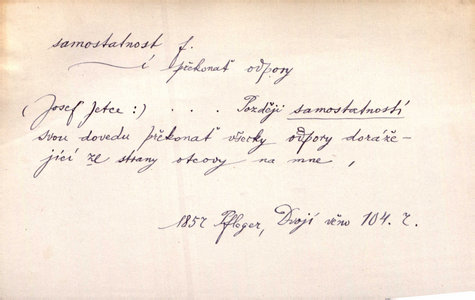 samostatnost f.
í překonat odpory
(Josef Jetce:) . . . Později samostatností
svou dovedu překonat všecky odpory doráže-
jící ze strany otcovy na mne,
1857 Pfleger, Dvojí věno 104. ř.